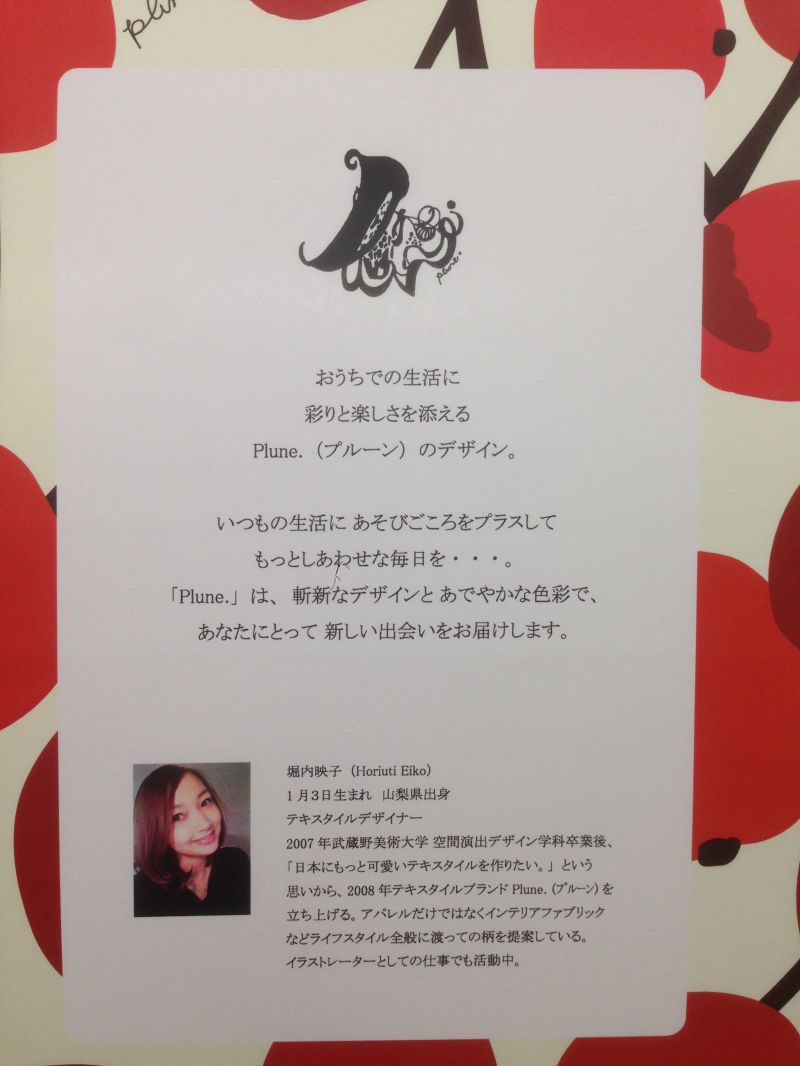 plune.
おうちでの生活に
彩りと楽しさを添える
Plune.（プルーン）のデザイン。
いつもの生活に あそびごころをプラスして
もっとしあわせな毎日を・・・。
「Plune.」は、斬新なデザインと あでやかな色彩で、
あなたにとって 新しい出会いをお届けします。
堀内映子（Horiuti Eiko）
1月3日生まれ　山梨県出身
テキスタイルデザイナー
2007年武蔵野美術大学 空間演出デザイン学科卒業後、
「日本にもっと可愛いテキスタイルを作りたい。」という
思いから、2008年テキスタイルブランドPlune.（プルーン）を
立ち上げる。アパレルだけではなくインテリアファブリック
などライフスタイル全般に渡っての柄を提案している。
イラストレーターとしての仕事でも活動中。